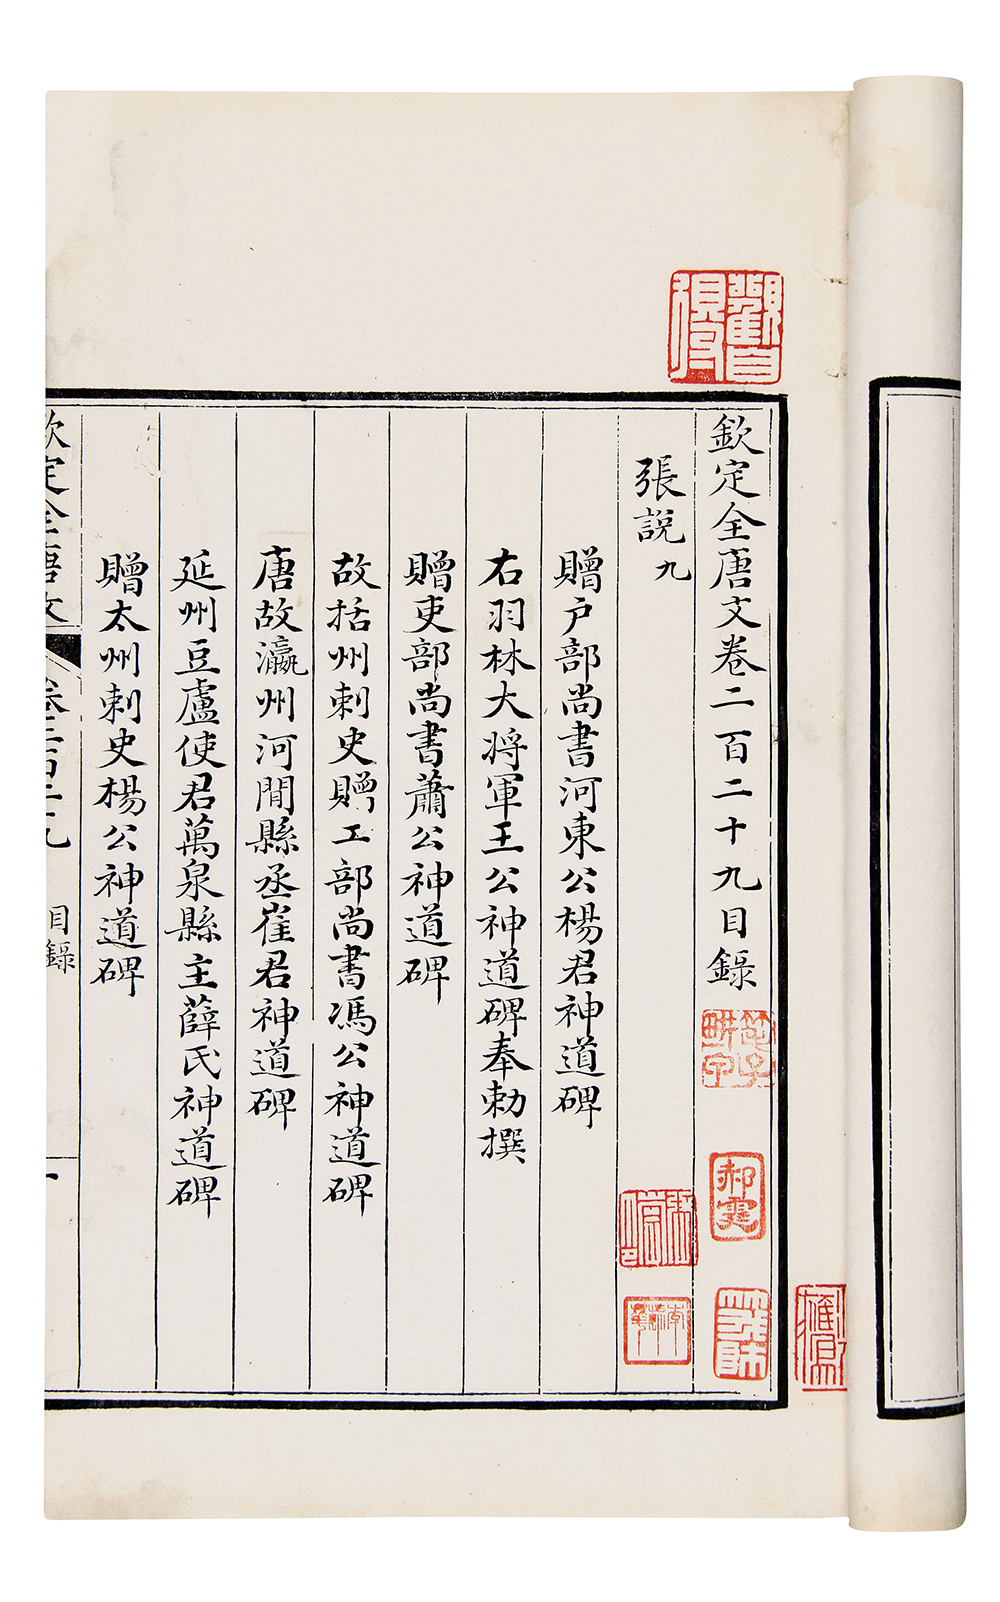 欽定全唐文卷二百二十九目錄
張說九
贈戶部尚書河東公楊君神道碑
右羽林大將軍王公神道碑奉勅撰
贈吏部尚書蕭公神道碑
故括州刺史贈工部尚書馮公神道碑
唐故瀛州河間縣丞崔君神道碑
延州豆盧使君萬泉縣主薛氏神道碑
贈太州刺史楊公神道碑
欽定全唐文
卷二百二十九
目錄
一
觀自得
郝霙